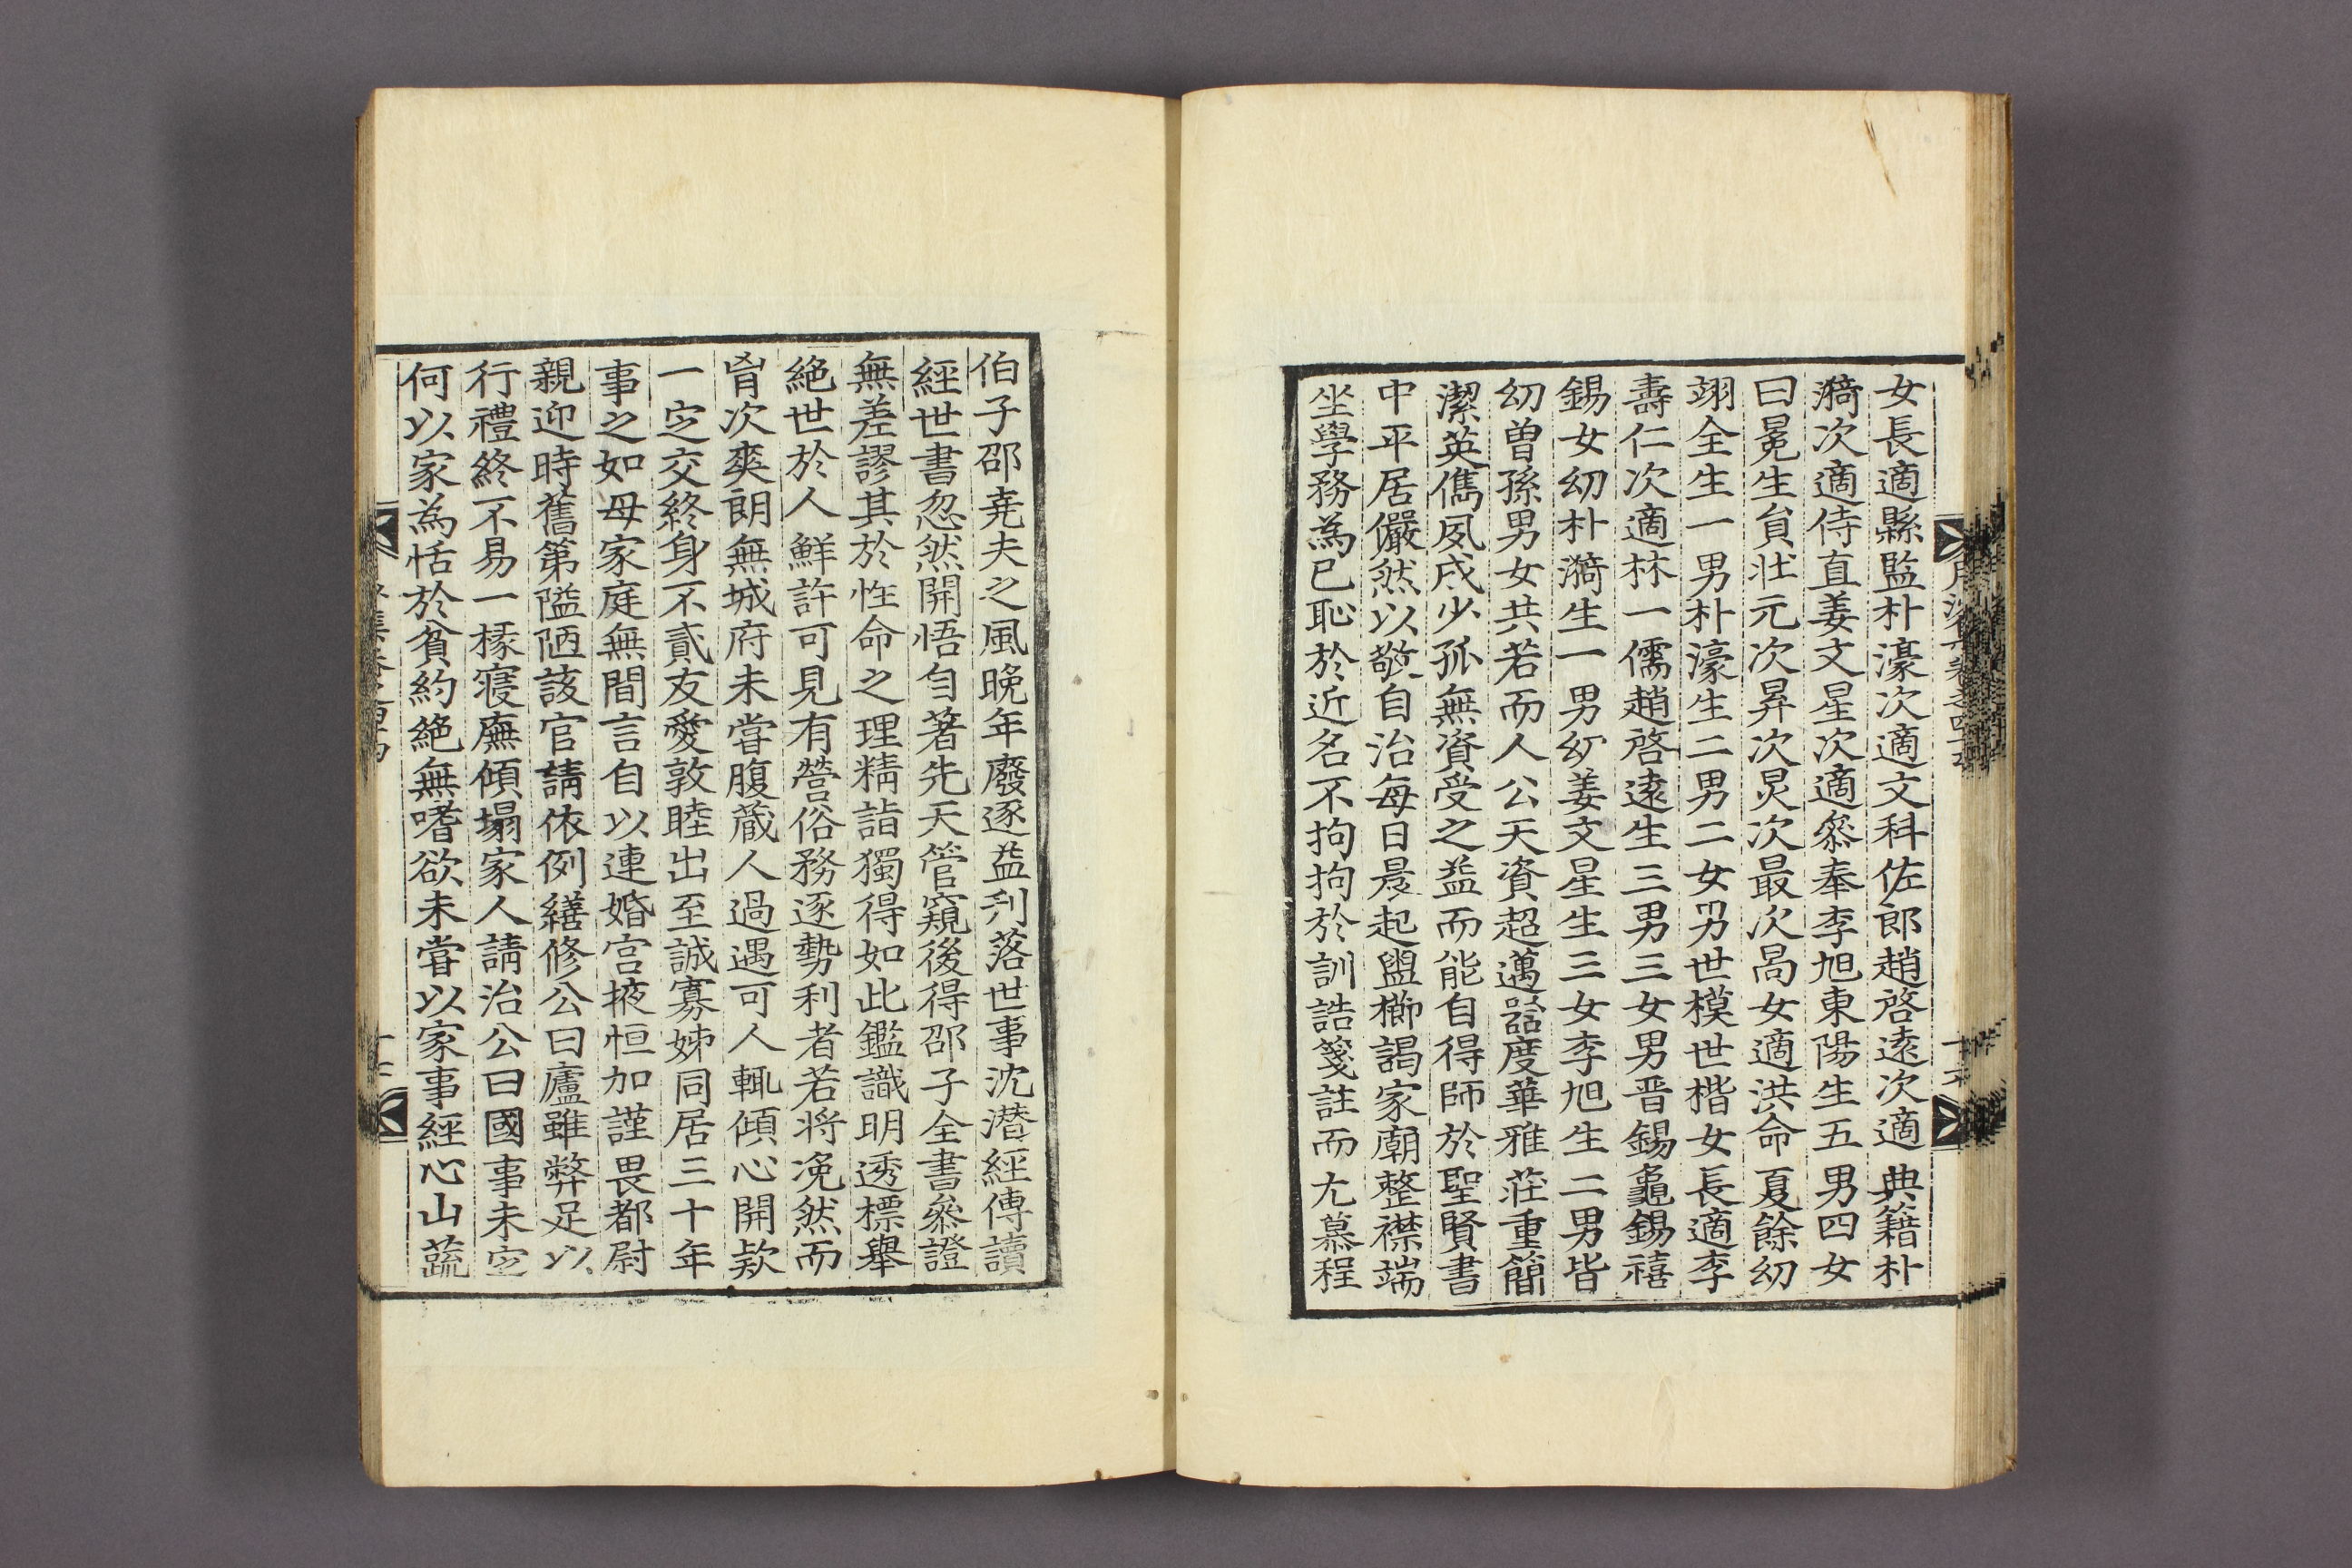 女長適縣監朴濠次適文科佐郎趙啓遠次適典籍朴
漪次適侍直姜文星次適叅奉李旭東陽生五男四女
曰冕生員壯元次昇次炅次最次昺女適洪命夏餘幼
翊全生一男朴濠生二男二女男世模世楷女長適李
壽仁次適林一儒趙啓遠生三男三女男晋錫龜錫禧
錫女幼朴漪生一男幼姜文星生三女李旭生二男皆
幼曽孫男女共若而人公天資超邁噐度華雅莊重簡
潔英儁夙成少孤無資受之益而能自得師於聖賢書
中平居儼然以敬自治每日晨起盥櫛謁家廟整襟端
坐學務為已恥於近名不拘拘於訓誥箋註而尤慕程
伯子邵堯夫之風晚年廢逐益刋落世事沈潜經傳讀
經世書忽然開悟自著先天管窺後得邵子全書叅證
無差謬其於性命之理精詣獨得如此鑑識明透標舉
絶世於人鮮許可見有營俗務逐勢利者若将凂然而
胷次爽朗無城府未甞腹蔵人過遇可人輒傾心開欵
一定交終身不貳友愛敦睦出至誠寡姊同居三十年
事之如母家庭無間言自以連婚宮掖恒加謹畏都尉
親迎時舊第隘陋該官請依例繕修公曰廬雖弊足以
行禮終不易一椽寢廡傾塌家人請治公曰國事未定
何以家為恬於貧約絶無嗜欲未甞以家事經心山蔬